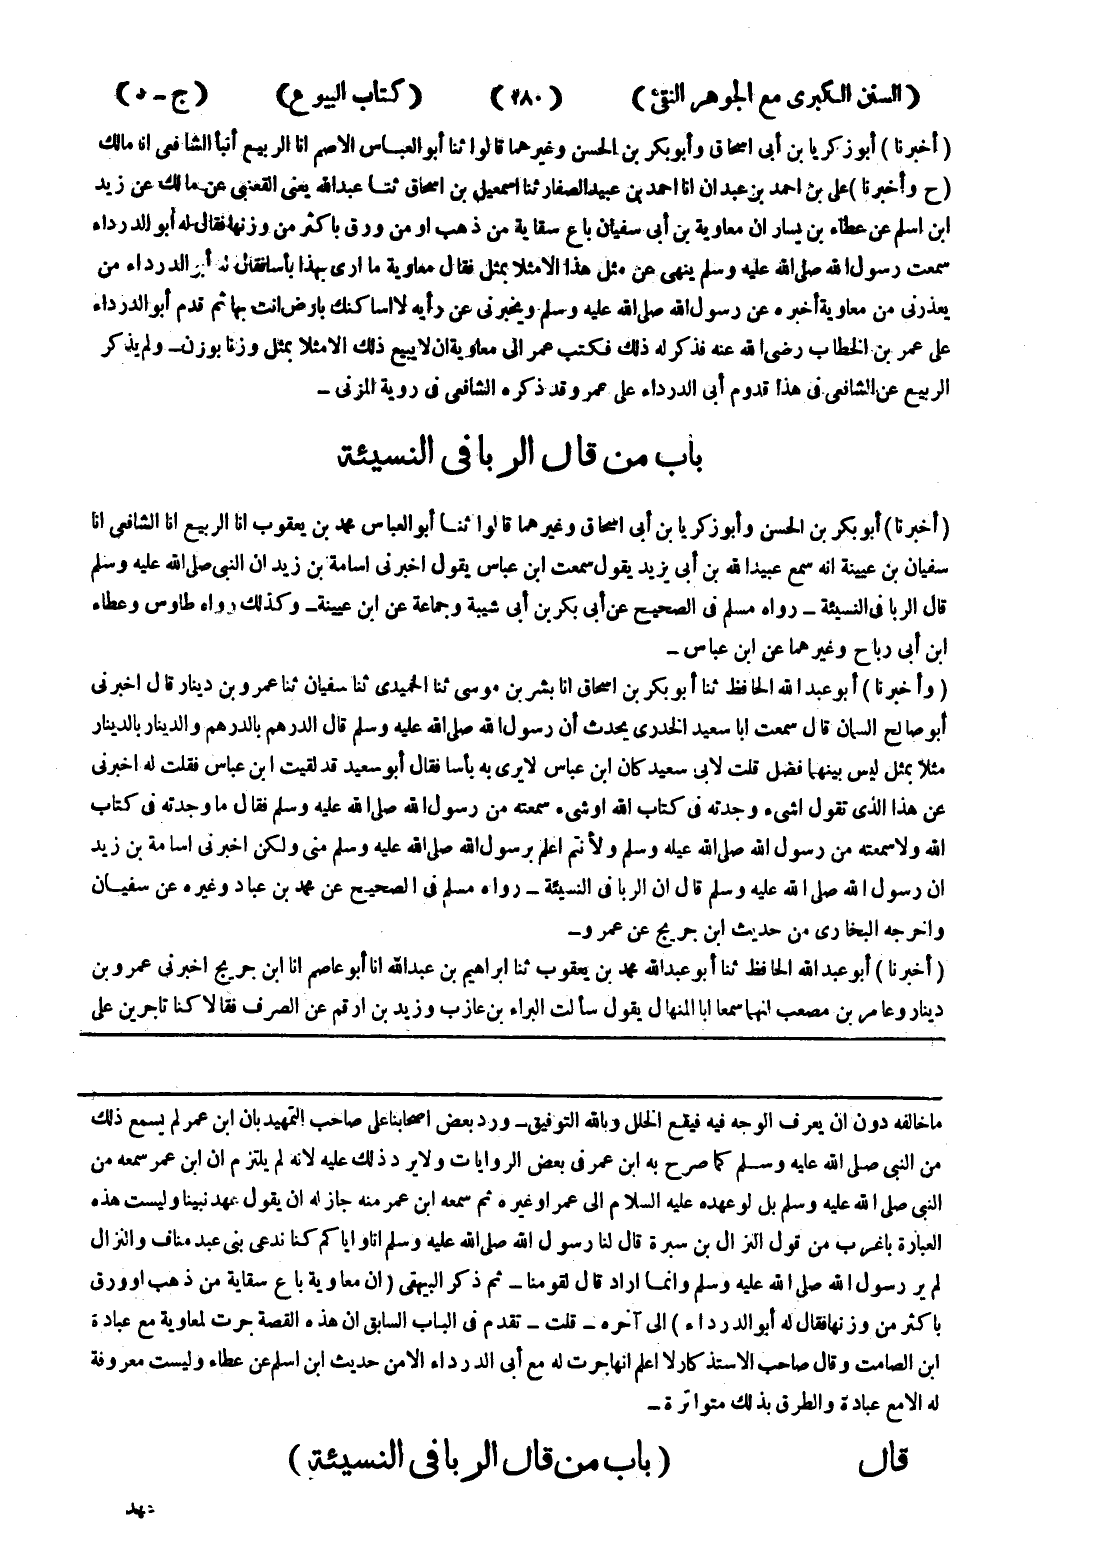 (السنن الكبرى مع الجوهر النقى) (٢٨٠) (كتاب البيوع) (ج - ٥)
(أخبرنا) أبو زكريا بن أبى اسحاق وأبو بكر بن الحسن وغيرهما قالوا ثنا أبو العباس الاصم انا الربيع أنبأ الشافعى انا مالك
(ح وأخبرنا) على بن احمد بن عبدان انا احمد بن عبيد الصفار ثنا اسمعيل بن اسحاق ثنا عبدالله يعنى القعنبى عن مالك عن زيد
ابن اسلم عن عطاء بن يسار ان معاوية بن أبى سفيان باع سقاية من ذهب او من ورق باكثر من وزنها فقال له أبو الدرداء
سمعت رسول الله صلى الله عليه وسلم ينهى عن مثل هذا الا مثلا بمثل فقال معاوية ما ارى بهذا بأسا فقال له أبو الدرداء من
يعذرنى من معاوية أخبره عن رسول الله صلى الله عليه وسلم ويخبرنى عن رأيه لا اساكنك بارض انت بها ثم قدم أبو الدرداء
على عمر بن الخطاب رضى الله عنه فذكر له ذلك فكتب عمر الى معاوية ان لا يبيع ذلك الا مثلا بمثل وزنا بوزن ــ ولم يذكر
الربيع عن الشافعى فى هذا قدوم أبى الدرداء على عمر وقد ذكره الشافعى فى روية المزنى ــ
باب من قال الربا فى النسيئة
(أخبرنا) أبو بكر بن الحسن وأبو زكريا بن أبى اسحاق وغيرهما قالوا ثنا أبو العباس محمد بن يعقوب انا الربيع انا الشافعى انا
سفيان بن عيينة انه سمع عبيد الله بن أبى يزيد يقول سمعت ابن عباس يقول اخبرنى اسامة بن زيد ان النبى صلى الله عليه وسلم
قال الربا فى النسيئة ــ رواه مسلم فى الصحيح عن أبى بكر بن أبى شيبة وجماعة عن ابن عيينة ــ وكذلك رواه طاوس وعطاء
ابن أبى رباح وغيرهما عن ابن عباس ــ
(وأخبرنا) أبو عبد الله الحافظ ثنا أبو بكر بن اسحاق انا بشر بن موسى ثنا الحميدى ثنا سفيان ثنا عمرو بن دينار قال اخبرنى
أبو صالح السمان قال سمعت ابا سعيد الخدرى يحدث أن رسول الله صلى الله عليه وسلم قال الدرهم بالدرهم والدينار بالدينار
مثلا بمثل ليس بينهما فضل قلت لابى سعيد كان ابن عباس لا يرى به بأسا فقال أبو سعيد قد لقيت ابن عباس فقلت له اخبرنى
عن هذا الذى تقول اشىء وجدته فى كتاب الله اوشىء سمعته من رسول الله صلى الله عليه وسلم فقال ما وجدته فى كتاب
الله ولا سمعته من رسول الله صلى الله عيله وسلم ولأنتم اعلم برسول الله صلى الله عليه وسلم منى ولكن اخبرنى اسامة بن زيد
ان رسول الله صلى الله عليه وسلم قال ان الربا فى النسيئة ــ رواه مسلم فى الصحيح عن محمد بن عباد وغيره عن سفيان
واخرجه البخارى من حديث ابن جريج عن عمرو ــ
(أخبرنا) أبو عبد الله الحافظ ثنا أبو عبدالله محمد بن يعقوب ثنا ابراهيم بن عبدالله انا أبو عاصم انا ابن جريج اخبرنى عمرو بن
دينار وعامر بن مصعب انهما سمعا ابا المنهال يقول سألت البراء بن عازب وزيد بن ارقم عن الصرف فقالا كنا تاجرين على
ماخالفه دون ان يعرف الوجه فيه فيقع الخلل وبالله التوفيق ــ ورد بعض اصحابنا على صاحب التمهيد بان ابن عمر لم يسمع ذلك
من النبى صلى الله عليه وسلم كما صرح به ابن عمر فى بعض الروايات ولا يرد ذلك عليه لانه لم يلتزم ان ابن عمر سمعه من
النبى صلى الله عليه وسلم بل لو عهده عليه السلام الى عمر اوغيره ثم سمعه ابن عمر منه جاز له ان يقول عهد نبينا وليست هذه
العبارة باغرب من قول النزال بن سبرة قال لنا رسول الله صلى الله عليه وسلم انا واياكم كنا ندعى بنى عبد مناف والنزال
لم ير رسول الله صلى الله عليه وسلم وانما اراد قال لقومنا ــ ثم ذكر البيهقى (ان معاوية باع سقاية من ذهب اوورق
باكثر من وزنها فقال له أبو الدرداء) الى آخره ــ قلت ــ تقدم فى الباب السابق ان هذه القصة جرت لمعاوية مع عبادة
ابن الصامت وقال صاحب الاستذكار لا اعلم انها جرت له مع أبى الدرداء الامن حديث ابن اسلم عن عطاء وليست معروفة
له الامع عبادة والطرق بذلك متواترة ــ
قال (باب من قال الربا فى النسيئة)